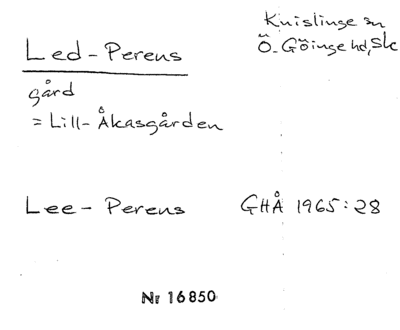 Knislinge sn
Led-Perens
Ö. Göinge hd, Sk
gård
= Lill-Åkasgården
Lee-Perens GHÅ 1965:28
Nr 16850